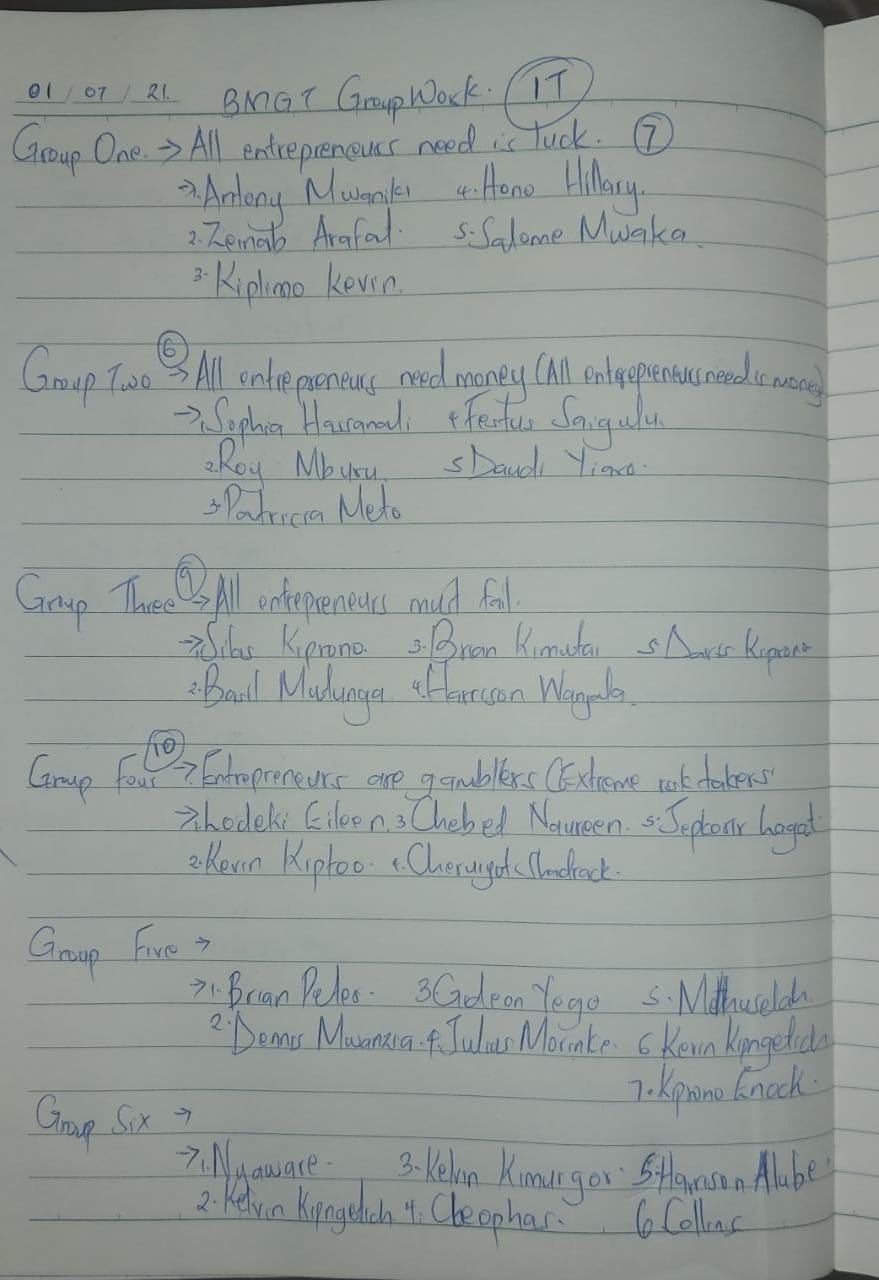 01 / 07 / 21. BMGT GroupWork. IT
Group One. → All entrepreneurs need is luck. 7
→1. Antony Mwaniki 4. Hono Hillary.
2. Zeinab Arafat. 5. Salome Mwaka.
3. Kiplimo Kevin.
Group Two 6 → All entrepreneurs need money (All entrepreneurs need is money)
→1. Sophia Hassanali 4 Festus Saigulu.
2. Roy Mburu. 5 Daudi
3. Patricia Meto
Group Three 9 → All entrepreneurs must fail.
→1. Silas Kiprono. 3. Brian Kimutai 5 Kiprono
2. Basil Mulunga. 4. Harrison Wanjala.
Group Four 10 → Entrepreneurs are gamblers (Extreme risk takers
→1. Lodeki Eileen. 3 Chebet Naureen. 5. Jepkosir hagat
2. Kevin Kiptoo. 4. Cheruiyot Shadrack.
Group Five →
→1. Brian Peter. 3 Gideon Yego 5. Methuselah.
2. Dennis Mwanzia. 4. Julius Morinke. 6 Kevin Kipngetich
7. Kiprono Enock.
Group Six →
→1. Nyaware. 3. Kelvin Kimurgor. 5. Harrison Alube
2. Kelvin Kipngetich 4. Cleophas. 6 Collins